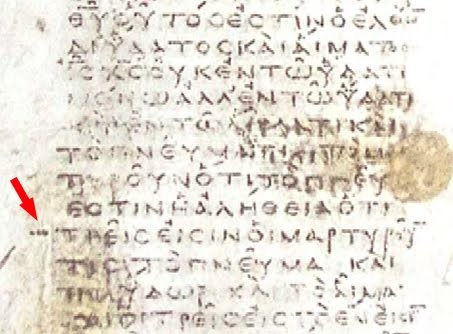 ΘΥΟΥΤΟϹΕϹΤΙΝΟΕΛΘΩ
ΔΙΥΔΑΤΟϹΚΑΙΑΙΜΑΤΟϹ
ΙϹΧϹΟΥΚΕΝΤΩΥΔΑΤΙ
ΜΟΝΩΑΛΛΕΝΤΩΥΔΑΤΙ
ΚΑΙΕΝΤΩ ΚΑΙ
ΤΟΠΝΕΥΜΑ
ΤΥΡΟΥΝΟΤΙΤΟΠΝΕΥ
ΕϹΤΙΝΗΑΛΗΘΕΙΑΟΤΙ
ΤΡΕΙϹΕΙϹΙΝΟΙΜΑΡΤΥΡΟΥ
ΤΕϹΤΟΠΝΕΥΜΑΚΑΙ
ΤΟΥΔΩΡΚΑΙΤΟΑΙΜΑ
ΚΑΙΟΙΤΡΕΙϹΕΙϹΤΟΕΝΕΙϹΙ